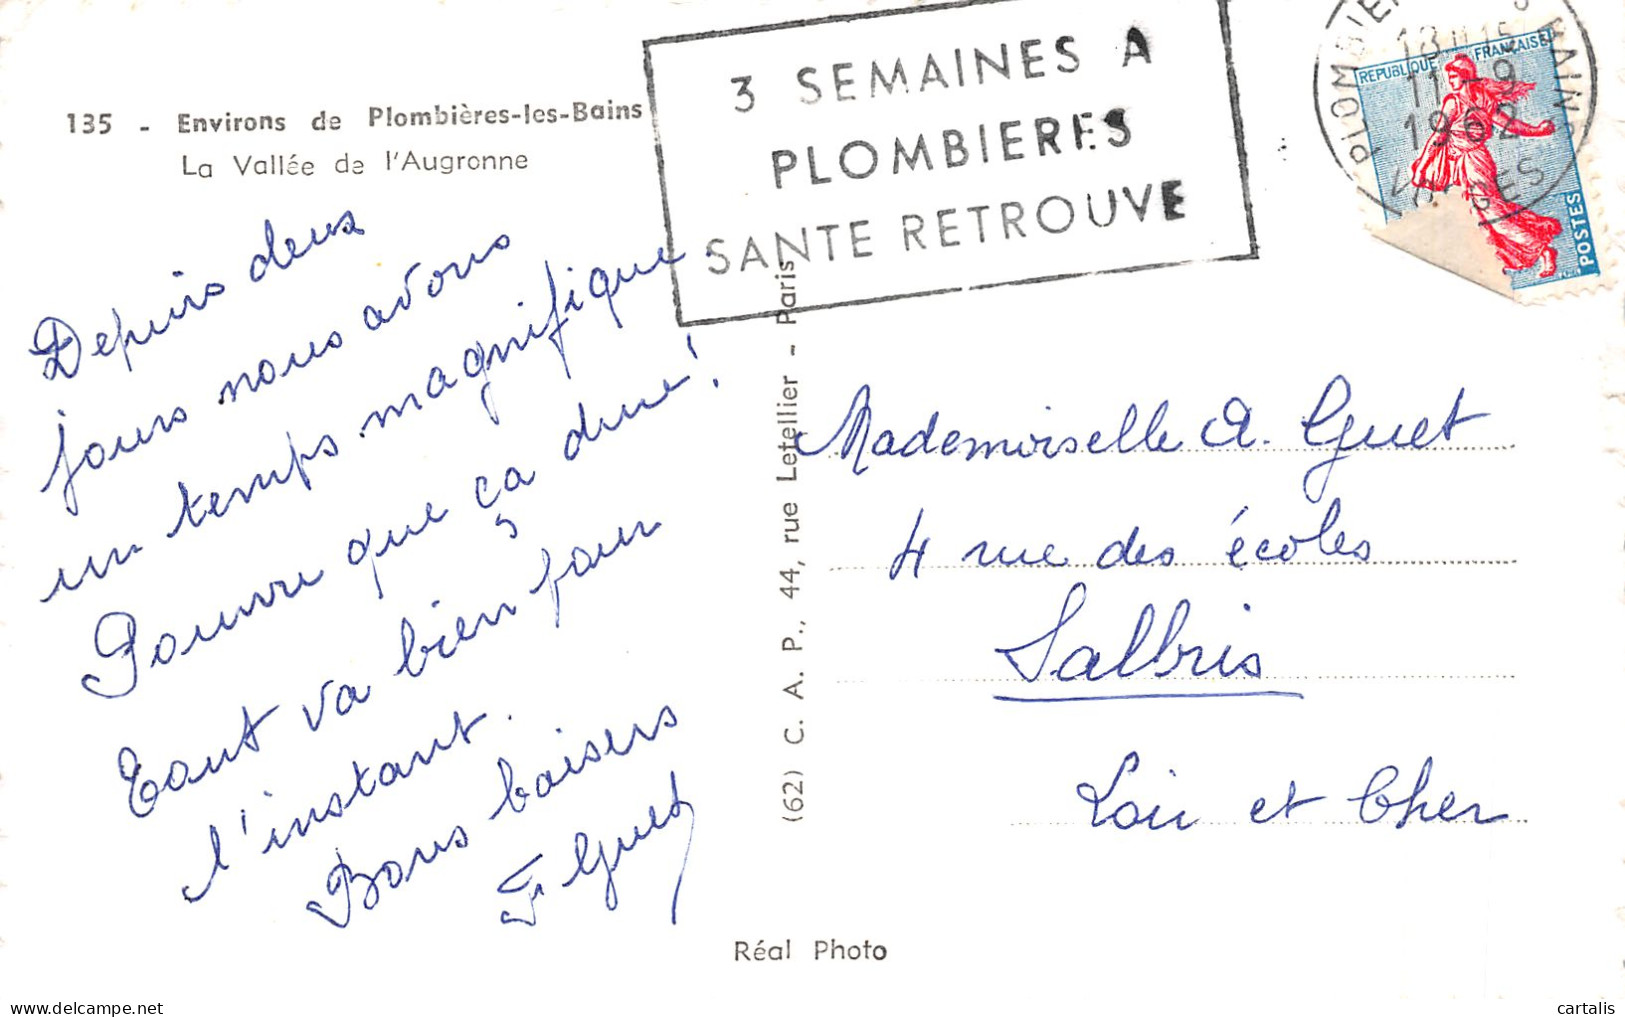 135 - Environs de Plombières-les-Bains
La Vallée de l'Augronne
3 SEMAINES A
PLOMBIERES
SANTE RETROUVE
13H15
11-9
1962
VOSGES
REPUBLIQUE FRANCAISE
POSTES
Depuis deux
jours nous avons
un temps magnifique.
Pourvu que ça dure!
Tout va bien pour
l'instant.
Bons baisers
F Guet
(62) C. A. P., 44, rue Letellier - Paris
Mademoiselle A. Guet
4 rue des écoles
Salbris
Loir et Cher
Réal Photo
cartalis